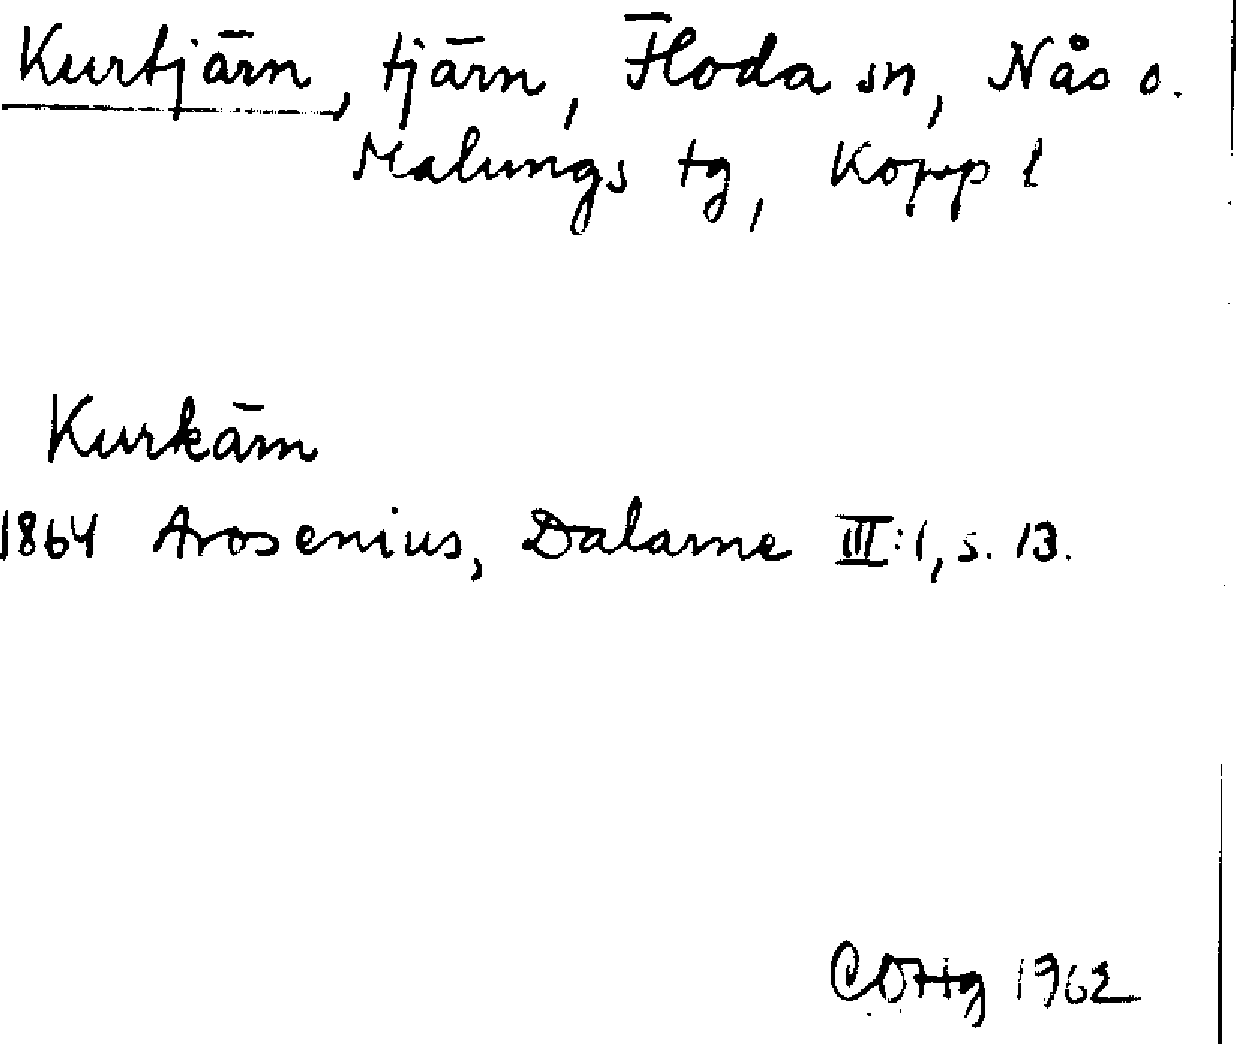 Kurtjärn, tjärn, Floda sn, Nås o.
Malungs tg, Kopp l
Kurkärn
1864 Arosenius, Dalarne III:1, s. 13.
1962